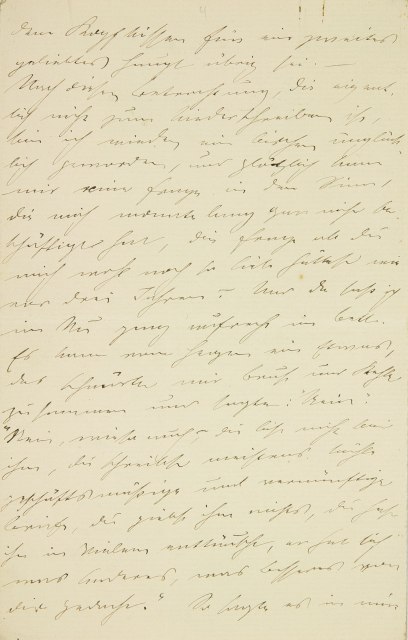 dem Kopfkissen für ein zweites
geliebtes Haupt übrig sei. —
Nach dieser Betrachtung, die eigent-
lich nicht zum niederschreiben ist,
bin ich wieder ein bischen unglück-
lich geworden, und plötzlich kam
mir eine Frage in den Sinn,
die mich monate lang gar nicht be-
schäftigt hat, die Frage ob Du
mich wohl noch so lieb hättest wie
vor drei Jahren? – Und da saß ich
im Nu ganz aufrecht im Bett.
Es kam vom Herzen ein Etwas,
das schnürte mir Brust und Kehle
zusammen und sagte: Nein!
"Nein, nicht mehr, die liebt nicht
ihm, die schreibt meistens
geschäftsmäßige und vernünftige
Briefe, die giebt ihm nichts, die hat
ihn in Vielem enttäuscht, er hat sich
was anderes, was besseres von
dir gedacht." So sagte es in mir